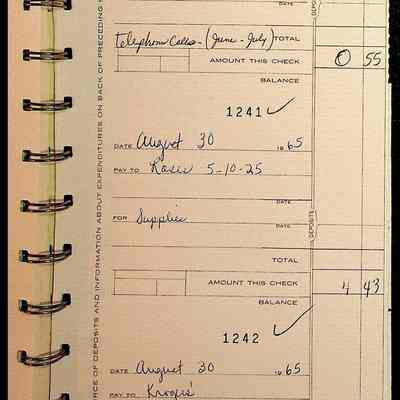 DATE
telephone Calls - (June - July) TOTAL
AMOUNT THIS CHECK 0 55
BALANCE
1241
DATE August 30 1965
PAY TO Roses 5-10-25
DATE
FOR Supplies
DATE
DEPOSITS
TOTAL
AMOUNT THIS CHECK 4 43
BALANCE
1242
DATE August 30 1965
PAY TO Kroger's
OF DEPOSITS AND INFORMATION ABOUT EXPENDITURES ON BACK OF PRECEDING